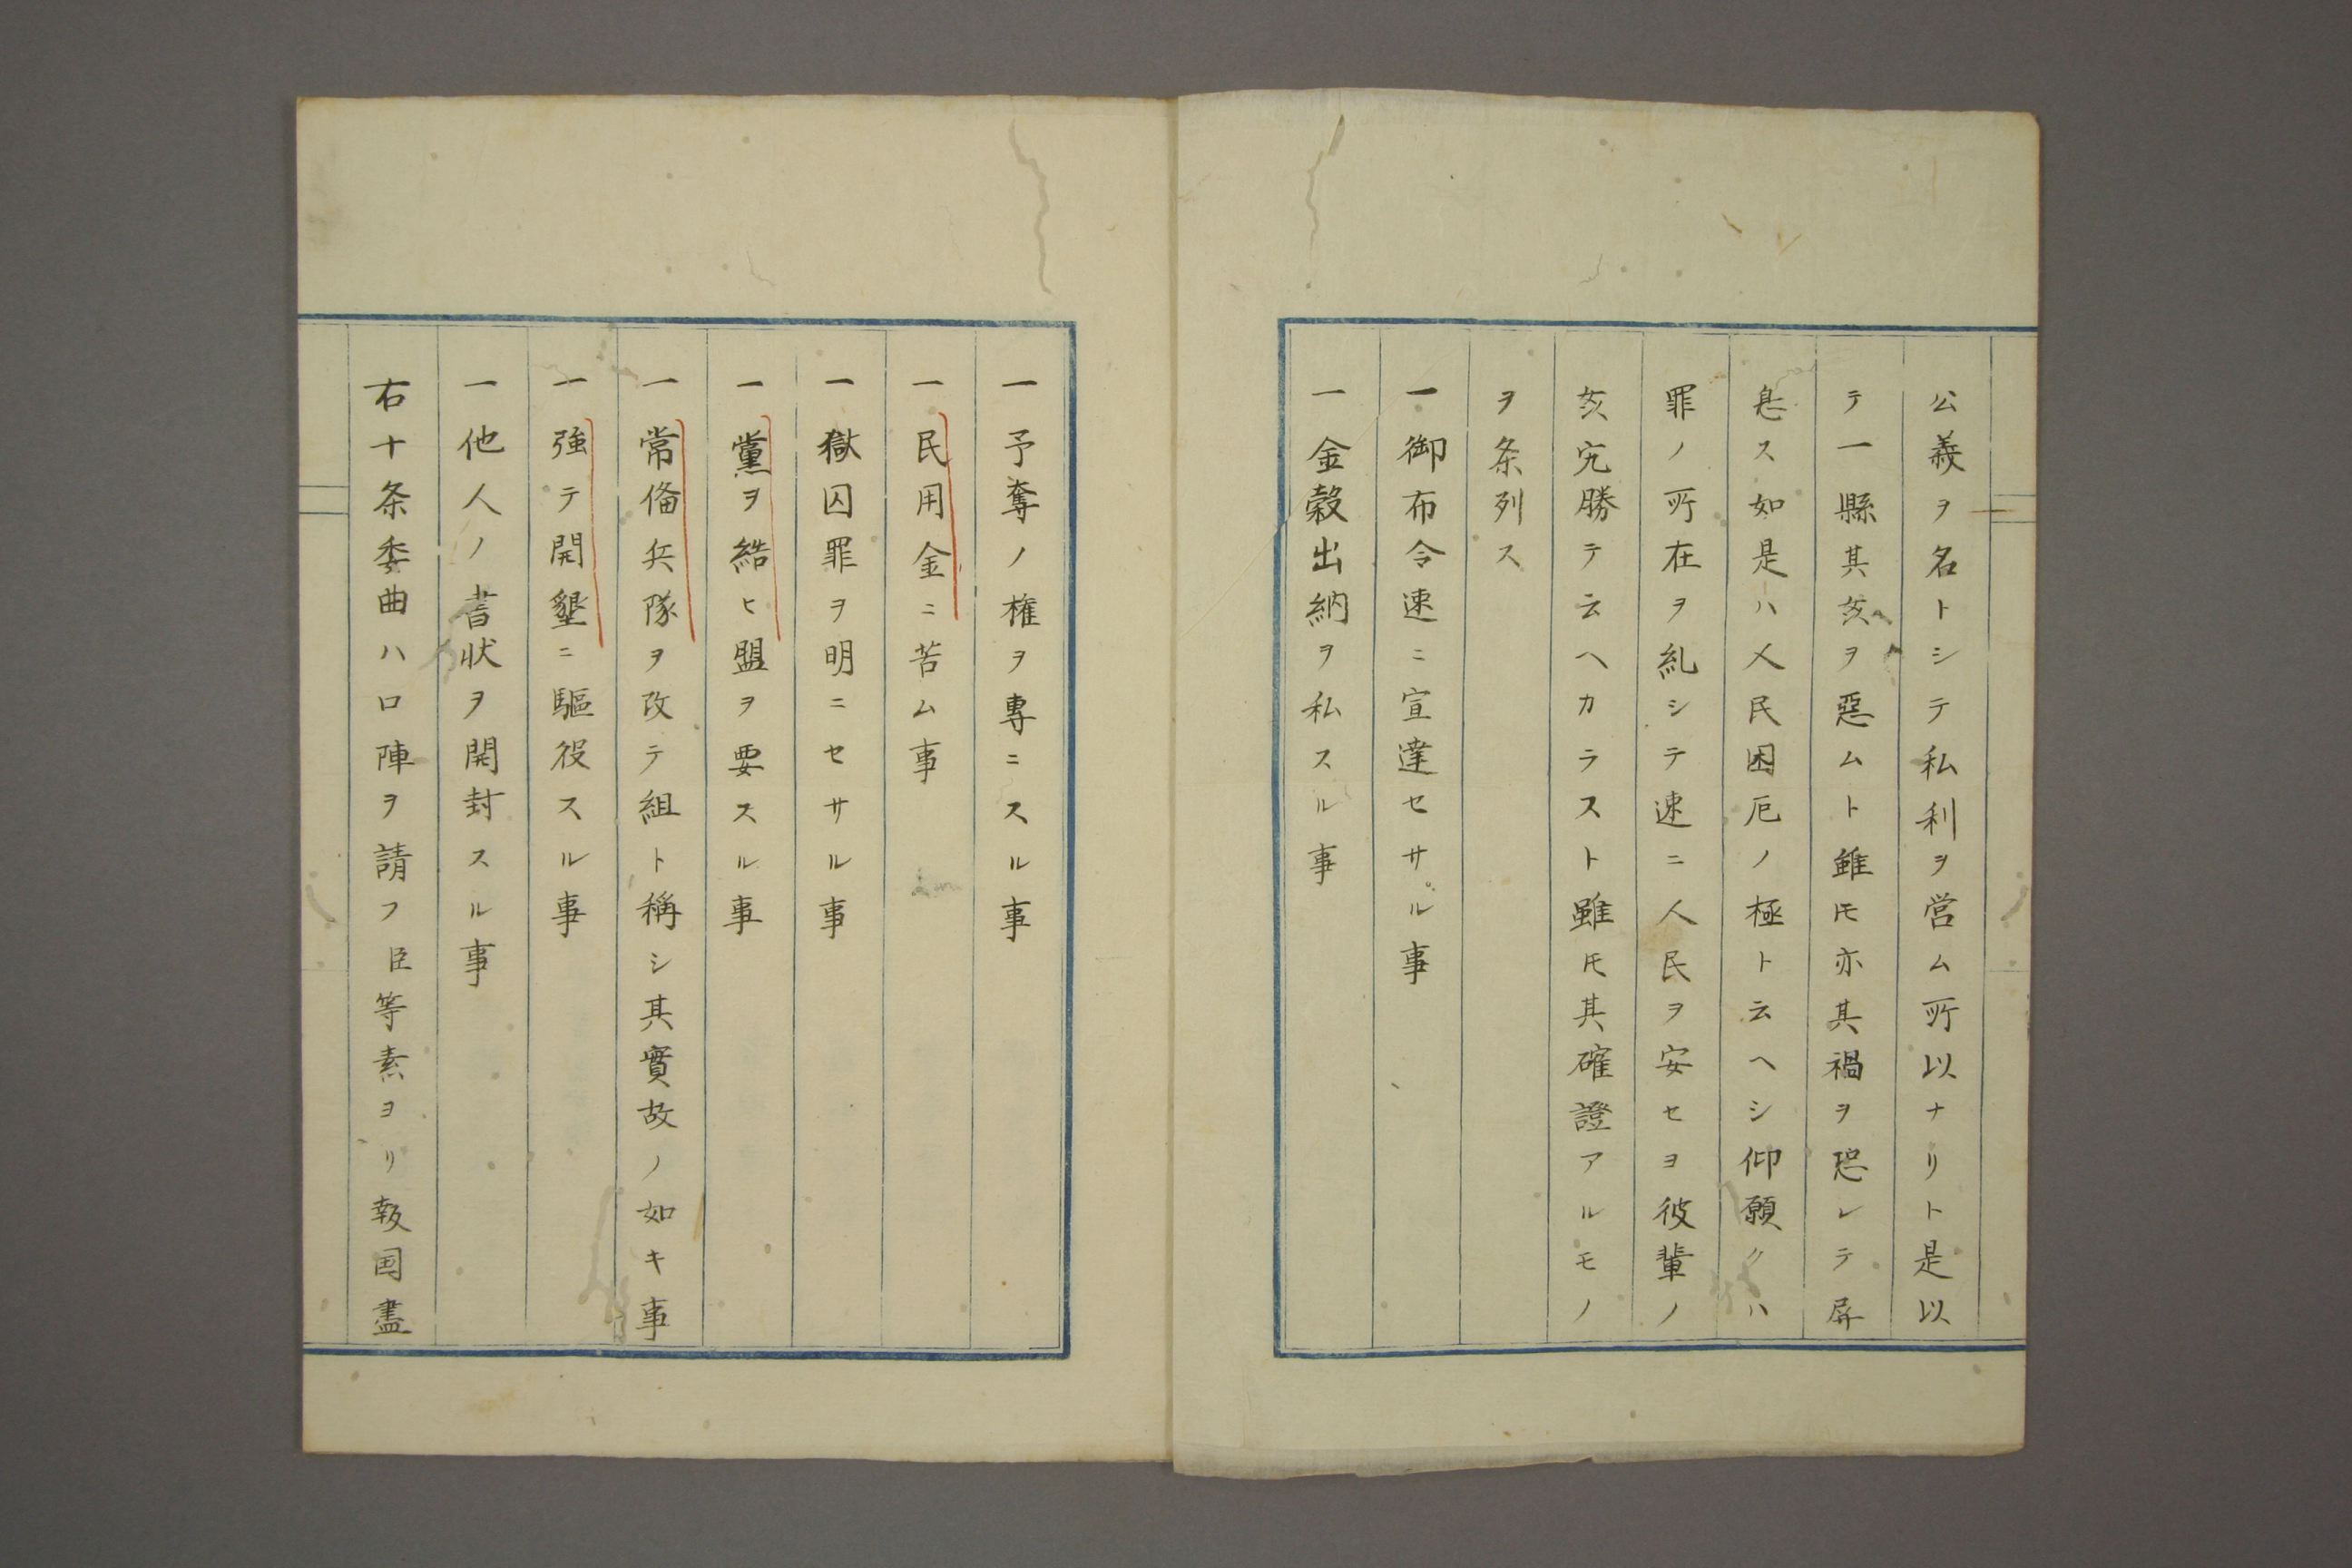 公義ヲ名トシテ私利ヲ営ム所以ナリト是以
テ一縣其姦ヲ惡ムト雖𪜈亦其禍ヲ恐レテ屏
息ス如是ハ人民困厄ノ極ト云ヘシ仰願クハ
罪ノ所在ヲ糺シテ速ニ人民ヲ安セヨ彼輩ノ
姦宄勝テ云ヘカラスト雖𪜈其確證アルモノ
ヲ条列ス
一御布令速ニ宣達セサル事
一金穀出納ヲ私スル事
一予奪ノ権ヲ專ニスル事
一民用金ニ苦ム事
一獄囚罪ヲ明ニセサル事
一黨ヲ結ヒ盟ヲ要スル事
一常備兵隊ヲ改テ組ト稱シ其實故ノ如キ事
一強テ開墾ニ驅役スル事
一他人ノ書状ヲ開封スル事
右十条委曲ハ口陣ヲ請フ臣等素ヨリ報国盡